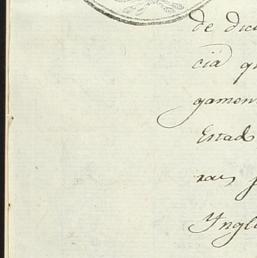 de dic
cia q
gamen
Estad
ras, p
Yngl